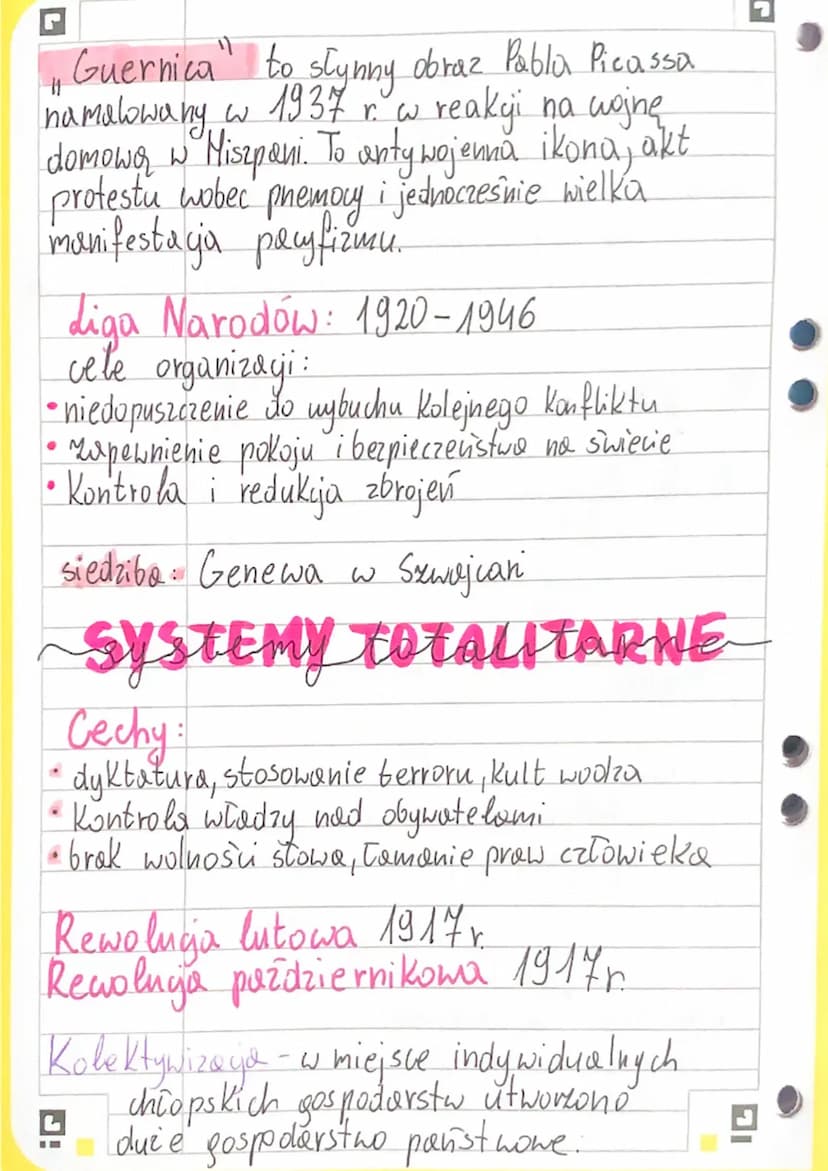 „Guernica" to słynny obraz Pabla Picassa
namalowany w 1937 r. w reakcji na wojnę
domową w Hiszpani. To antywojenna ikona, akt
protestu wobec przemocy i jednocześnie wielka
manifestacja pacyfizmu.
Liga Narodów: 1920-1946
cele organizacji:
• niedopuszczenie do wybuchu kolejnego konfliktu
• zapewnienie pokoju i bezpieczeństwa na świecie
• Kontrola i redukcja zbrojeń
siedziba: Genewa w Szwajcari
SYSTEMY TOTALITARNE
systemy totalitarne
Cechy:
• dyktatura, stosowanie terroru, kult wodza
• Kontrola władzy nad obywatelami
• brak wolności słowa, łamanie praw człowieka
Rewolucja lutowa 1917r.
Rewolucja październikowa 1917r.
Kolektywizacja - w miejsce indywidualnych
chłopskich gospodarstw utworzono
duże gospodarstwo państwowe.